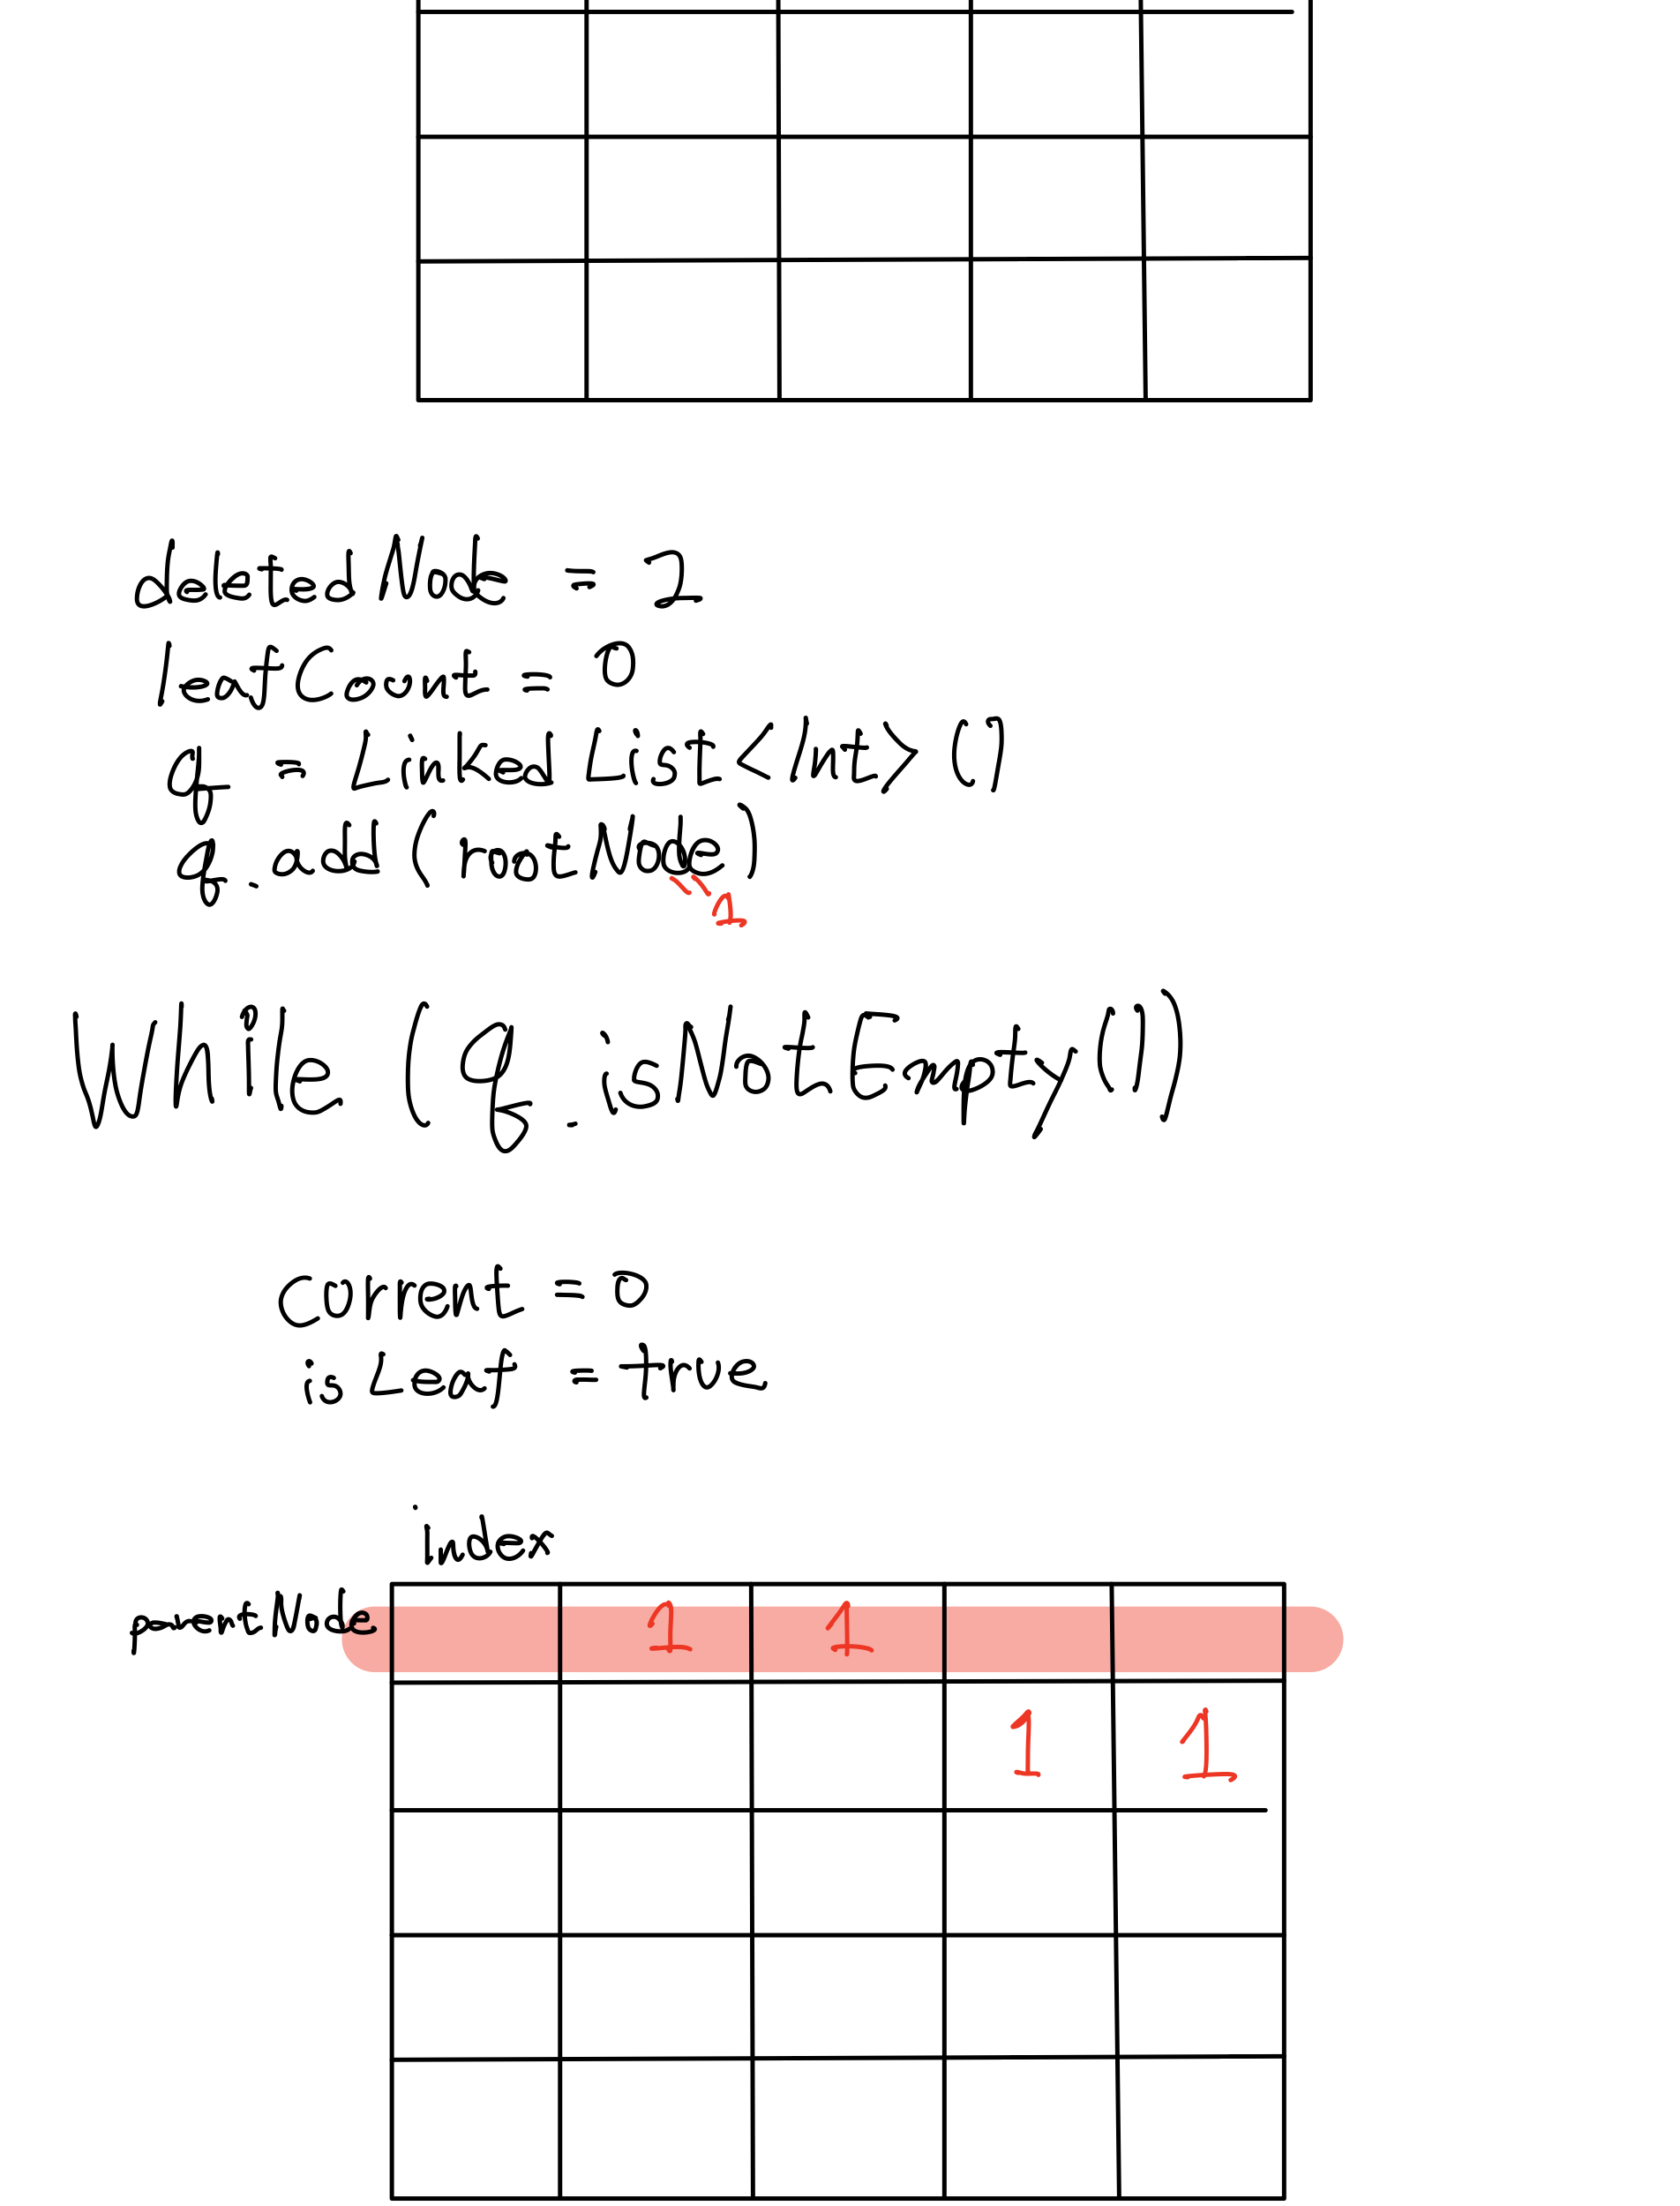 deletedNode = 2
leafCount = 0
q = LinkedList<Int>()
q.add(rootNode)
1
While (q.isNotEmpty())
current = 0
isLeaf = true
index
parentNode
1 1
1 1